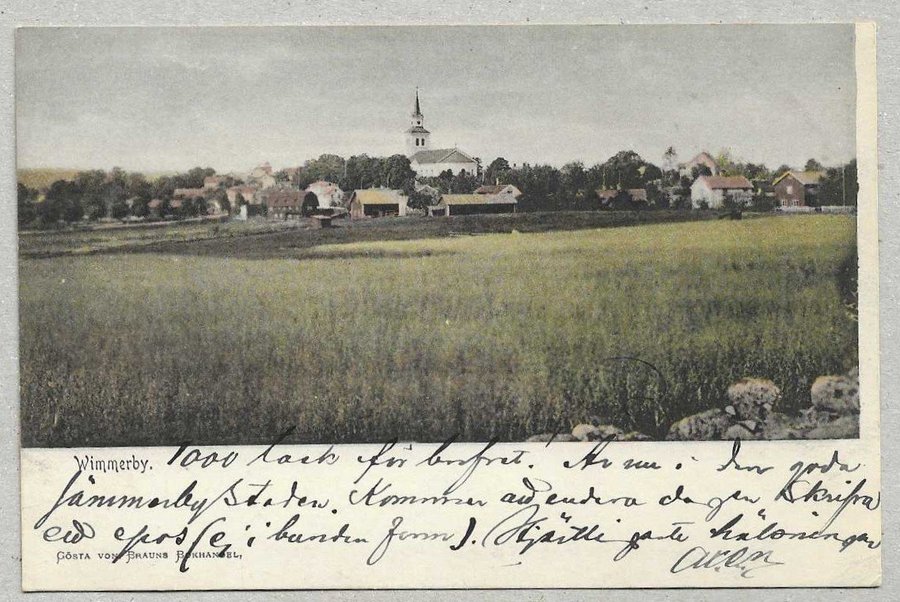 Wimmerby. 1000 tack för brefvet! Är nu i den goda
Jämmerby Staden. Kommer att endera dagen skrifva
ett epos (ej i bunden form). Hjärtligaste hälsningar
GÖSTA VON BRAUNS BOKHANDEL,